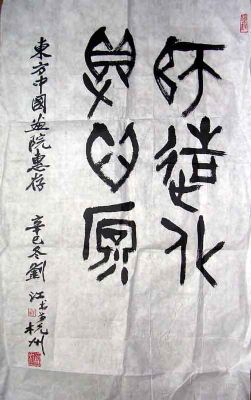 師造化
得心原
東方中國畫院惠存
辛巳冬劉江書於杭州